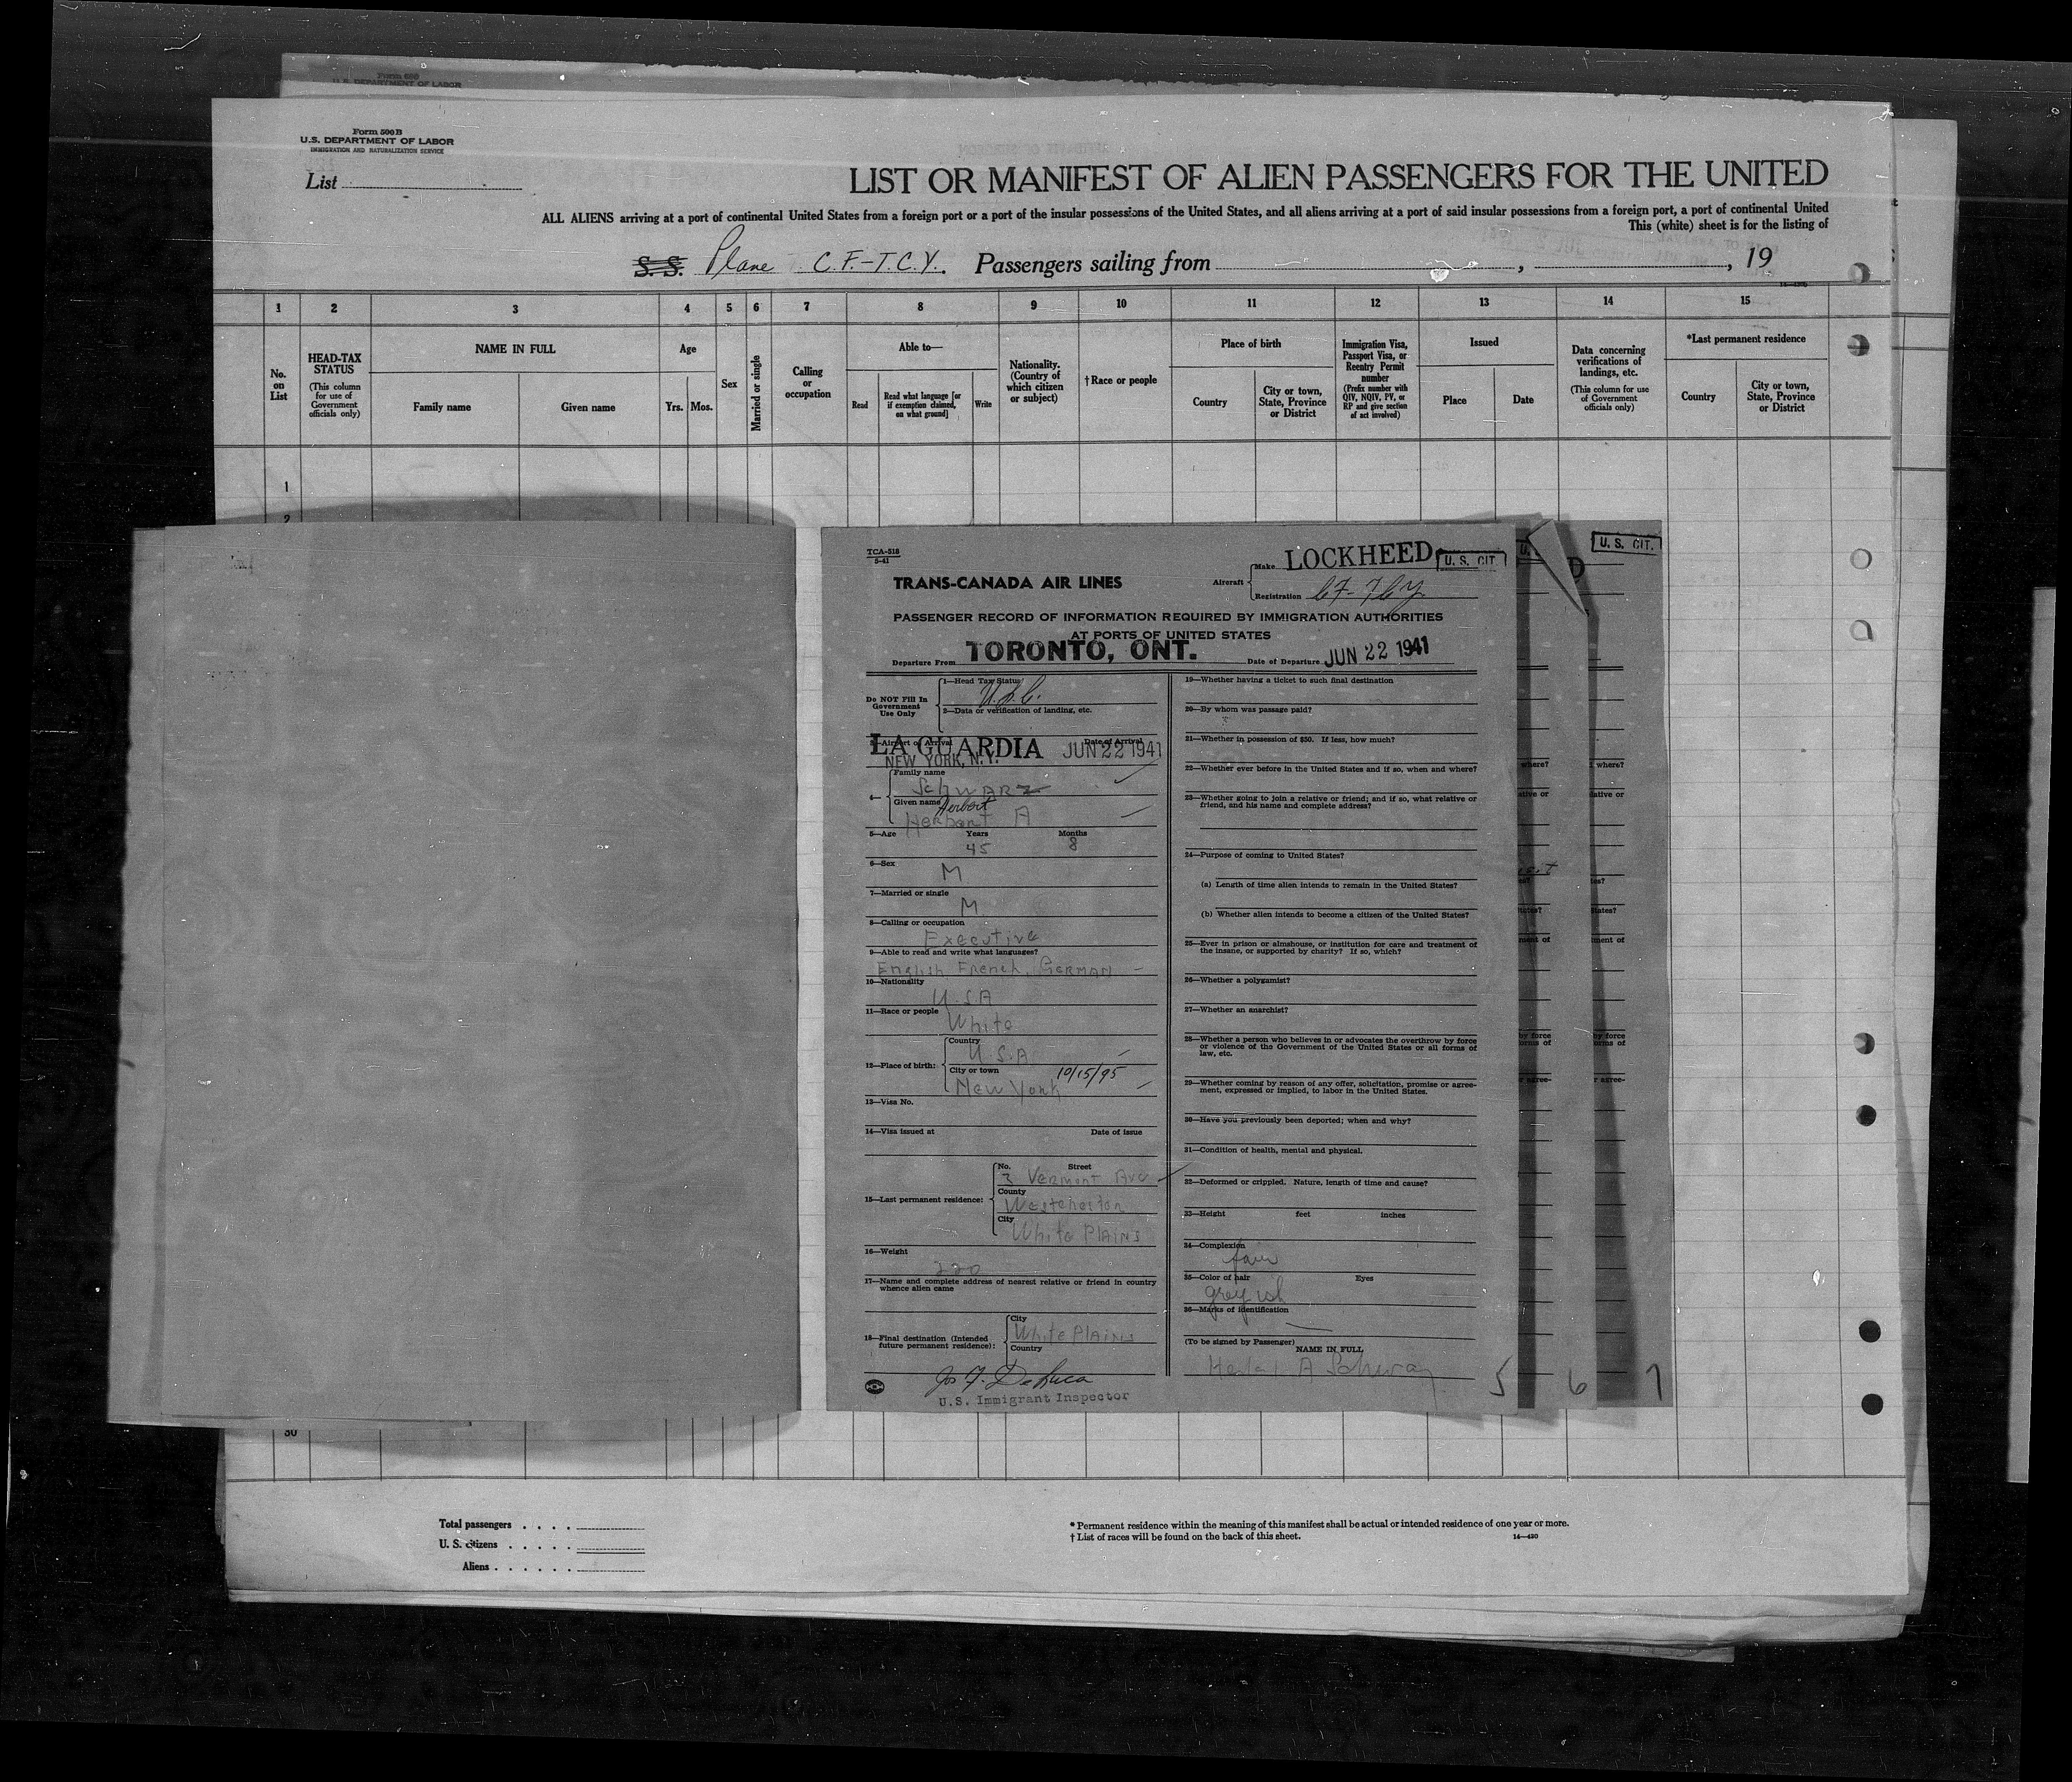 Form 680
U. S. DEPARTMENT OF LABOR
Form 500 B
U.S. DEPARTMENT OF LABOR
IMMIGRATION AND NATURALIZATION SERVICE
List
LIST OR MANIFEST OF ALIEN PASSENGERS FOR THE UNITED
ALL ALIENS arriving at a port of continental United States from a foreign port or a port of the insular possessions of the United States, and all aliens arriving at a port of said insular possessions from a foreign port, a port of continental United
This (white) sheet is for the listing of
S. S. Plane C.F.-T.C.Y. Passengers sailing from , , 19
1 2 3 4 5 6 7 8 9 10 11 12 13 14 15
No. on List
HEAD-TAX STATUS
(This column for use of Government officials only)
NAME IN FULL
Family name Given name
Age
Yrs. Mos.
Sex
Married or single
Calling or occupation
Able to—
Read
Read what language [or if exemption claimed, on what ground]
Write
Nationality. (Country of which citizen or subject)
†Race or people
Place of birth
Country
City or town, State, Province or District
Immigration Visa, Passport Visa, or Reentry Permit number
(Prefix number with QIV, NQIV, PV, or RP and give section of act involved)
Issued
Place Date
Data concerning verifications of landings, etc.
(This column for use of Government officials only)
*Last permanent residence
Country
City or town, State, Province or District
1
2
TCA-518
5-41
TRANS-CANADA AIR LINES
Aircraft
Make LOCKHEED
U. S. CIT.
Registration CF-TCY
U. S. CIT.
PASSENGER RECORD OF INFORMATION REQUIRED BY IMMIGRATION AUTHORITIES
AT PORTS OF UNITED STATES
Departure From TORONTO, ONT. Date of Departure JUN 22 1941
Do NOT Fill In Government Use Only
1—Head Tax Status U.S.C.
2—Data or verification of landing, etc.
3—Airport of Arrival Date of Arrival
LA GUARDIA JUN 22 1941
NEW YORK, N.Y.
4—
Family name
Schwarz
Given name Herbert
Herbert A
5—Age Years Months
45 8
6—Sex
M
7—Married or single
M
8—Calling or occupation
Executive
9—Able to read and write what languages?
English French, German —
10—Nationality
U.S.A
11—Race or people
White
12—Place of birth:
Country
U.S.A
City or town 10/15/95
New York
13—Visa No.
14—Visa issued at Date of issue
15—Last permanent residence:
No. Street
Vermont Ave
County
Westchester
City
White Plains
16—Weight
220
17—Name and complete address of nearest relative or friend in country whence alien came
18—Final destination (Intended future permanent residence):
City
White Plains
Country
Jos F. DeLuca
U.S. Immigrant Inspector
19—Whether having a ticket to such final destination
20—By whom was passage paid?
21—Whether in possession of $50. If less, how much?
22—Whether ever before in the United States and if so, when and where?
23—Whether going to join a relative or friend; and if so, what relative or
friend, and his name and complete address?
24—Purpose of coming to United States?
(a) Length of time alien intends to remain in the United States?
(b) Whether alien intends to become a citizen of the United States?
25—Ever in prison or almshouse, or institution for care and treatment of
the insane, or supported by charity? If so, which?
26—Whether a polygamist?
27—Whether an anarchist?
28—Whether a person who believes in or advocates the overthrow by force
or violence of the Government of the United States or all forms of
law, etc.
29—Whether coming by reason of any offer, solicitation, promise or agree-
ment, expressed or implied, to labor in the United States.
30—Have you previously been deported; when and why?
31—Condition of health, mental and physical.
32—Deformed or crippled. Nature, length of time and cause?
33—Height feet inches
34—Complexion
fair
35—Color of hair Eyes
greyish
36—Marks of identification
(To be signed by Passenger)
NAME IN FULL
Herbert A Schwarz
5 6 7
30
Total passengers
U. S. citizens
Aliens
* Permanent residence within the meaning of this manifest shall be actual or intended residence of one year or more.
† List of races will be found on the back of this sheet. 14—430